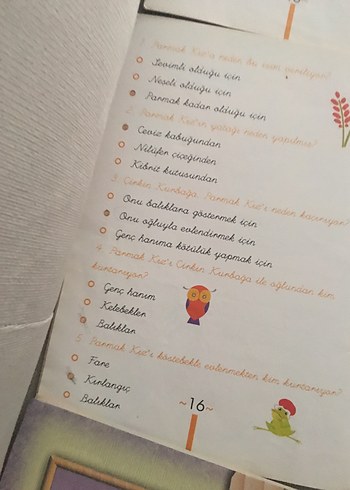 1. Parmak Kız'a neden bu isim veriliyor?
Sevimli olduğu için
Neşeli olduğu için
Parmak kadar olduğu için
2. Parmak Kız'ın yatağı neden yapılmış?
Ceviz kabuğundan
Nilüfer çiçeğinden
Kibrit kutusundan
3. Çirkin Kurbağa, Parmak Kız'ı neden kaçırıyor?
Onu balıklara göstermek için
Onu oğluyla evlendirmek için
Genç hanıma kötülük yapmak için
4. Parmak Kız'ı Çirkin Kurbağa ile oğlundan kim
kurtarıyor?
Genç hanım
Kelebekler
Balıklar
5. Parmak Kız'ı köstebekle evlenmekten kim kurtarıyor?
Fare
Kırlangıç
Balıklar
~16~